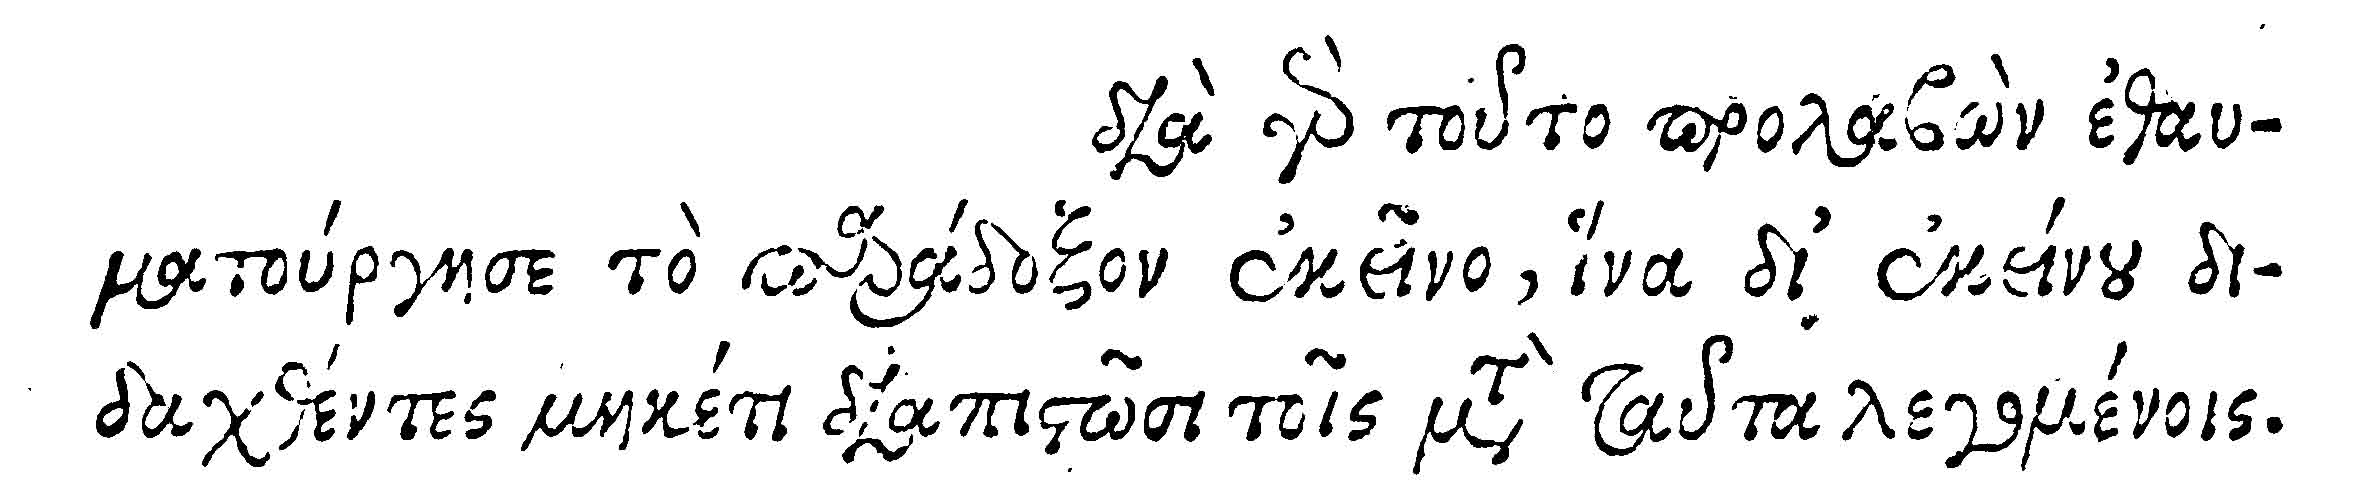 διὰ γὰρ τοῦτο προλαβὼν ἐθαυ-
ματούργησε τὸ παράδοξον ἐκεῖνο, ἵνα δι’ ἐκείνου δι-
δαχθέντες μηκέτι διαπιστῶσι τοῖς μετὰ ταῦτα λεγομένοις.